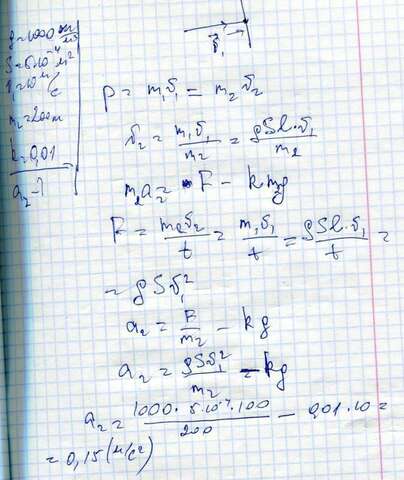 ρ=1000 кг/м³
S=5·10⁻⁴ м²
υ₁=10 м/с
m₂=200 кг
k=0,01
a₂-?
υ₁
P = m₁υ₁ = m₂υ₂
υ₂ = m₁υ₁/m₂ = ρSl·υ₁/m₂
m₂a₂ = F - km₂g
F = m₂υ₂/t = m₁υ₁/t = ρSl·υ₁/t =
= ρSυ₁²
a₂ = F/m₂ - kg
a₂ = ρSυ₁²/m₂ - kg
a₂ = 1000·5·10⁻⁴·100/200 - 0,01·10 =
= 0,15 (м/с²)